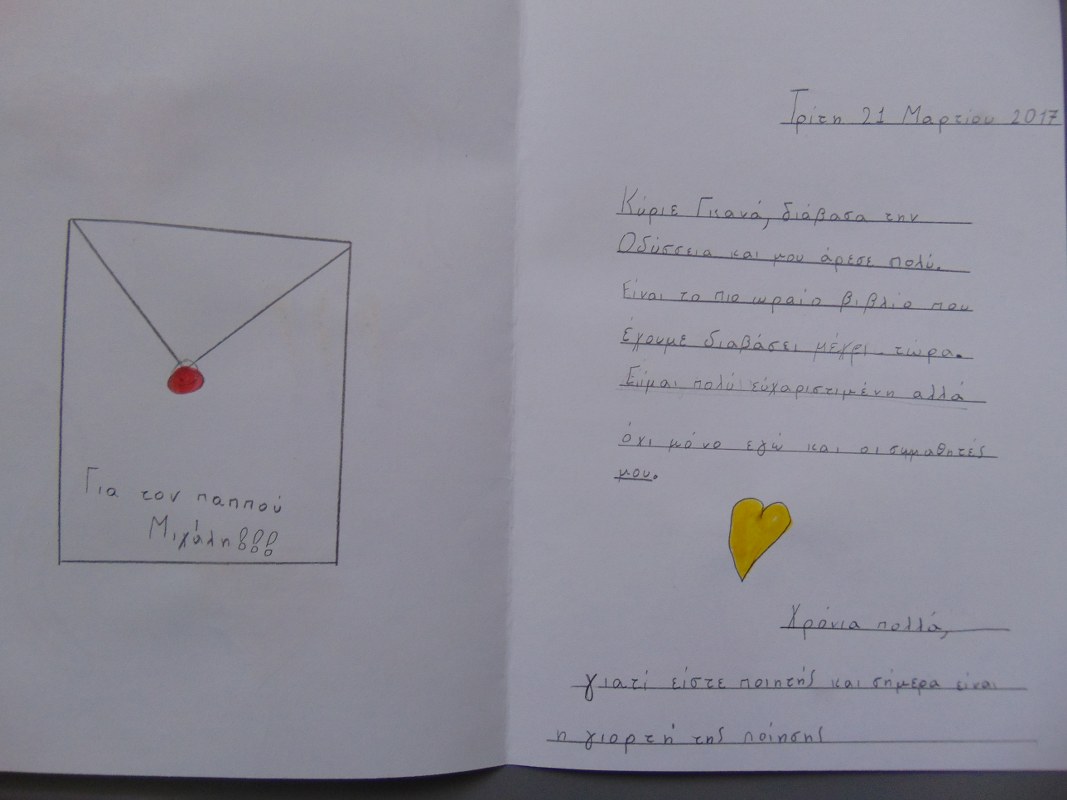 Για τον παππού
Μιχάλη!!!
Τρίτη 21 Μαρτίου 2017
Κύριε Γκανά, διάβασα την
Οδύσσεια και μου άρεσε πολύ.
Είναι το πιο ωραίο βιβλίο που
έχουμε διαβάσει μέχρι τώρα.
Είμαι πολύ εύχαριστιμένη αλλά
όχι μόνο εγώ και οι συμαθητές
μου.
Χρόνια πολλά,
γιατί είστε ποιητής και σήμερα είναι
η γιορτή της ποίησης